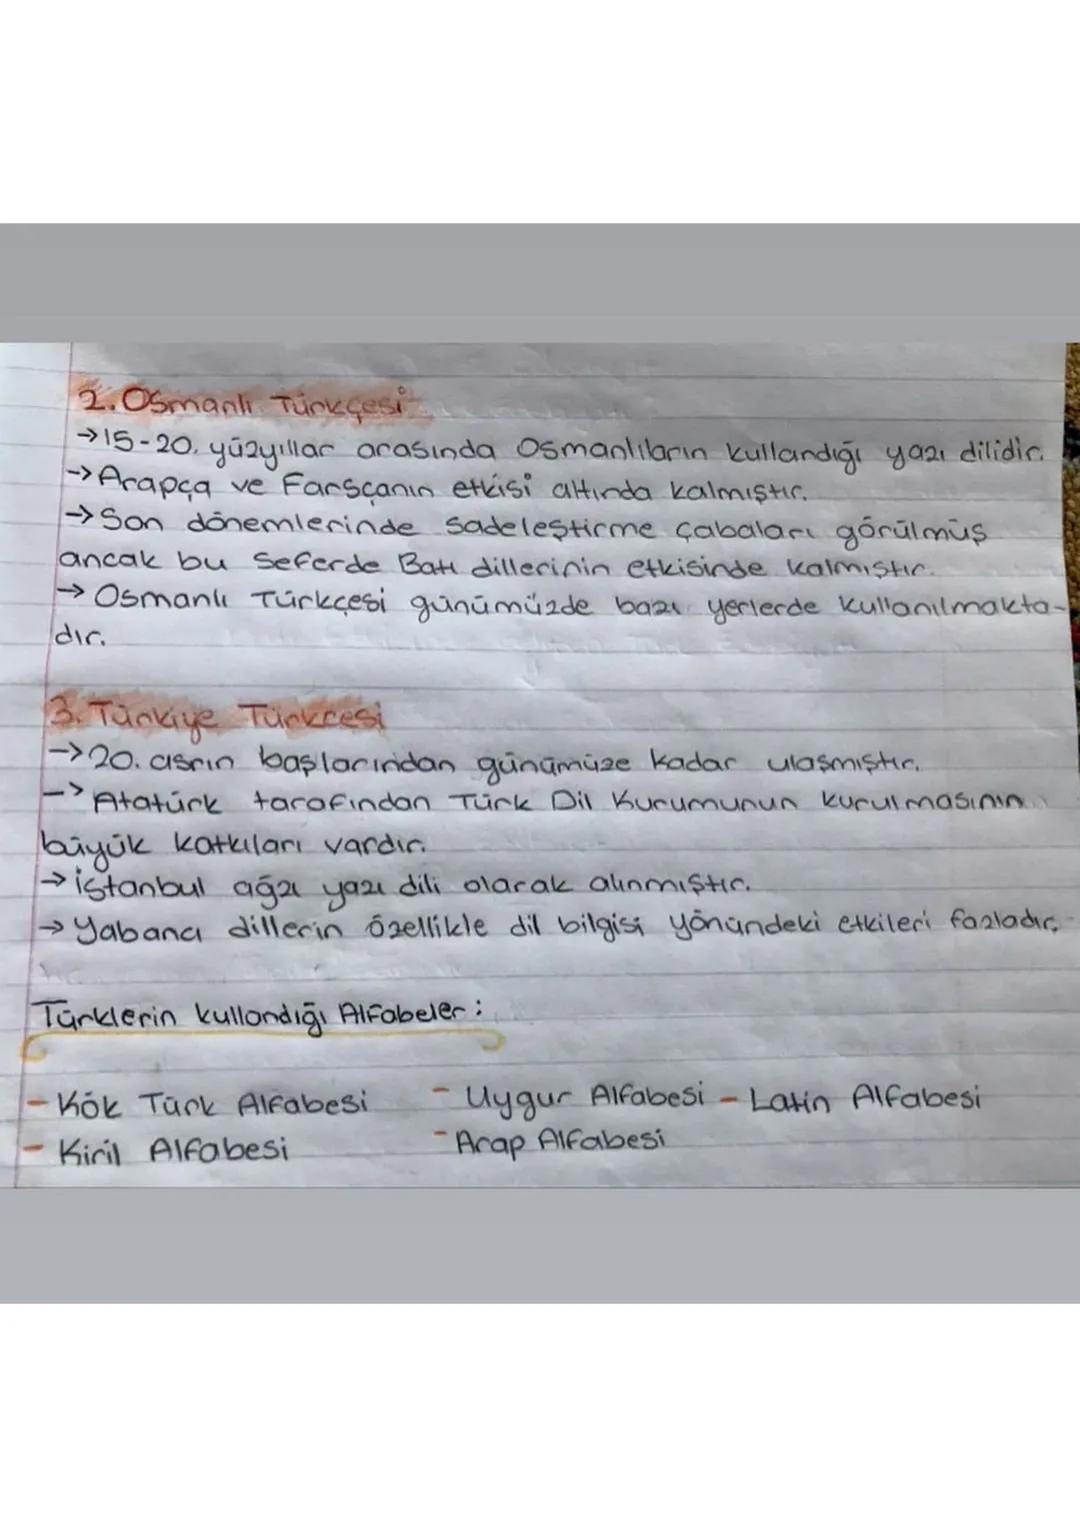 2. Osmanlı Türkçesi
→ 15-20. yüzyıllar arasında Osmanlıların kullandığı yazı dilidir.
→ Arapça ve Farsçanın etkisi altında kalmıştır.
→ Son dönemlerinde sadeleştirme çabaları görülmüş
ancak bu seferde Batı dillerinin etkisinde kalmıştır.
→ Osmanlı Türkçesi günümüzde bazı yerlerde kullanılmakta-
dır.
3. Türkiye Türkcesi
→ 20. asrın başlarından günümüze kadar ulaşmıştır.
→ Atatürk tarafından Türk Dil Kurumunun kurulmasının
büyük katkıları vardır.
→ İstanbul ağzı yazı dili olarak alınmıştır.
→ Yabancı dillerin özellikle dil bilgisi yönündeki etkileri fazladır.
Türklerin kullandığı Alfabeler:
- Kök Türk Alfabesi - Uygur Alfabesi - Latin Alfabesi
- Kiril Alfabesi - Arap Alfabesi